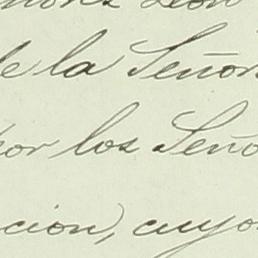 de la Señor
por los Seño
cion, cuyo